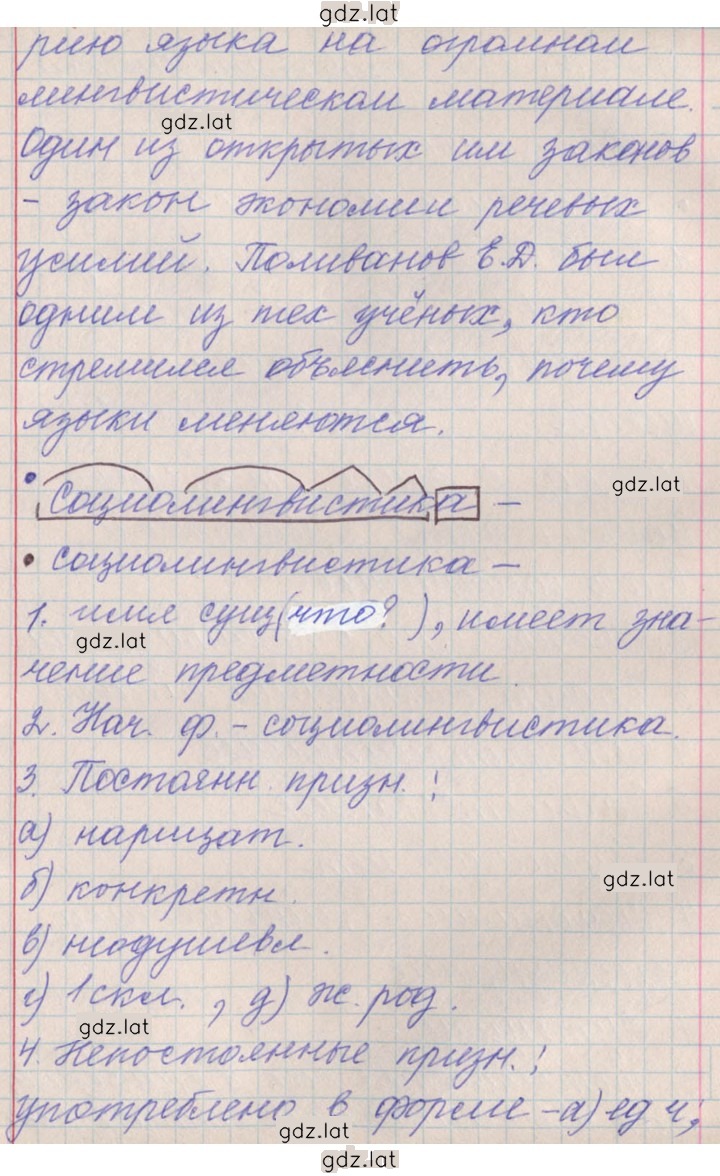 gdz.lat
рию языка на огромном
лингвистическом материале.
gdz.lat
Один из открытых им законов
- закон экономии речевых
усилий. Поливанов Е.Д. был
одним из тех учёных, кто
стремился объяснить, почему
языки меняются.
gdz.lat
• социолингвистика –
• социолингвистика –
1. имя сущ(что?), имеет зна-
gdz.lat
чение предметности
2. Нач. ф. – социолингвистика.
3. Постоянн. призн.:
а) нарицат.
gdz.lat
б) конкретн.
в) неодушевл.
г) 1 скл., д) ж. род.
gdz.lat
4. Непостоянные призн.:
употреблено в форме – а) ед ч,
gdz.lat
gdz.lat